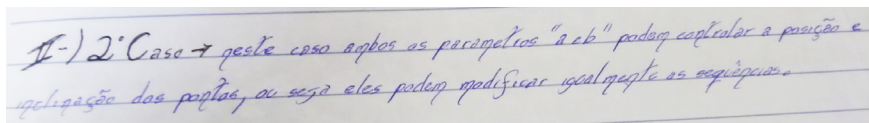 II-) 2° Caso → neste caso ambos os parametros "a e b" podem controlar a posição e
inclinação dos pontos, ou seja eles podem modificar igualmente as sequências.